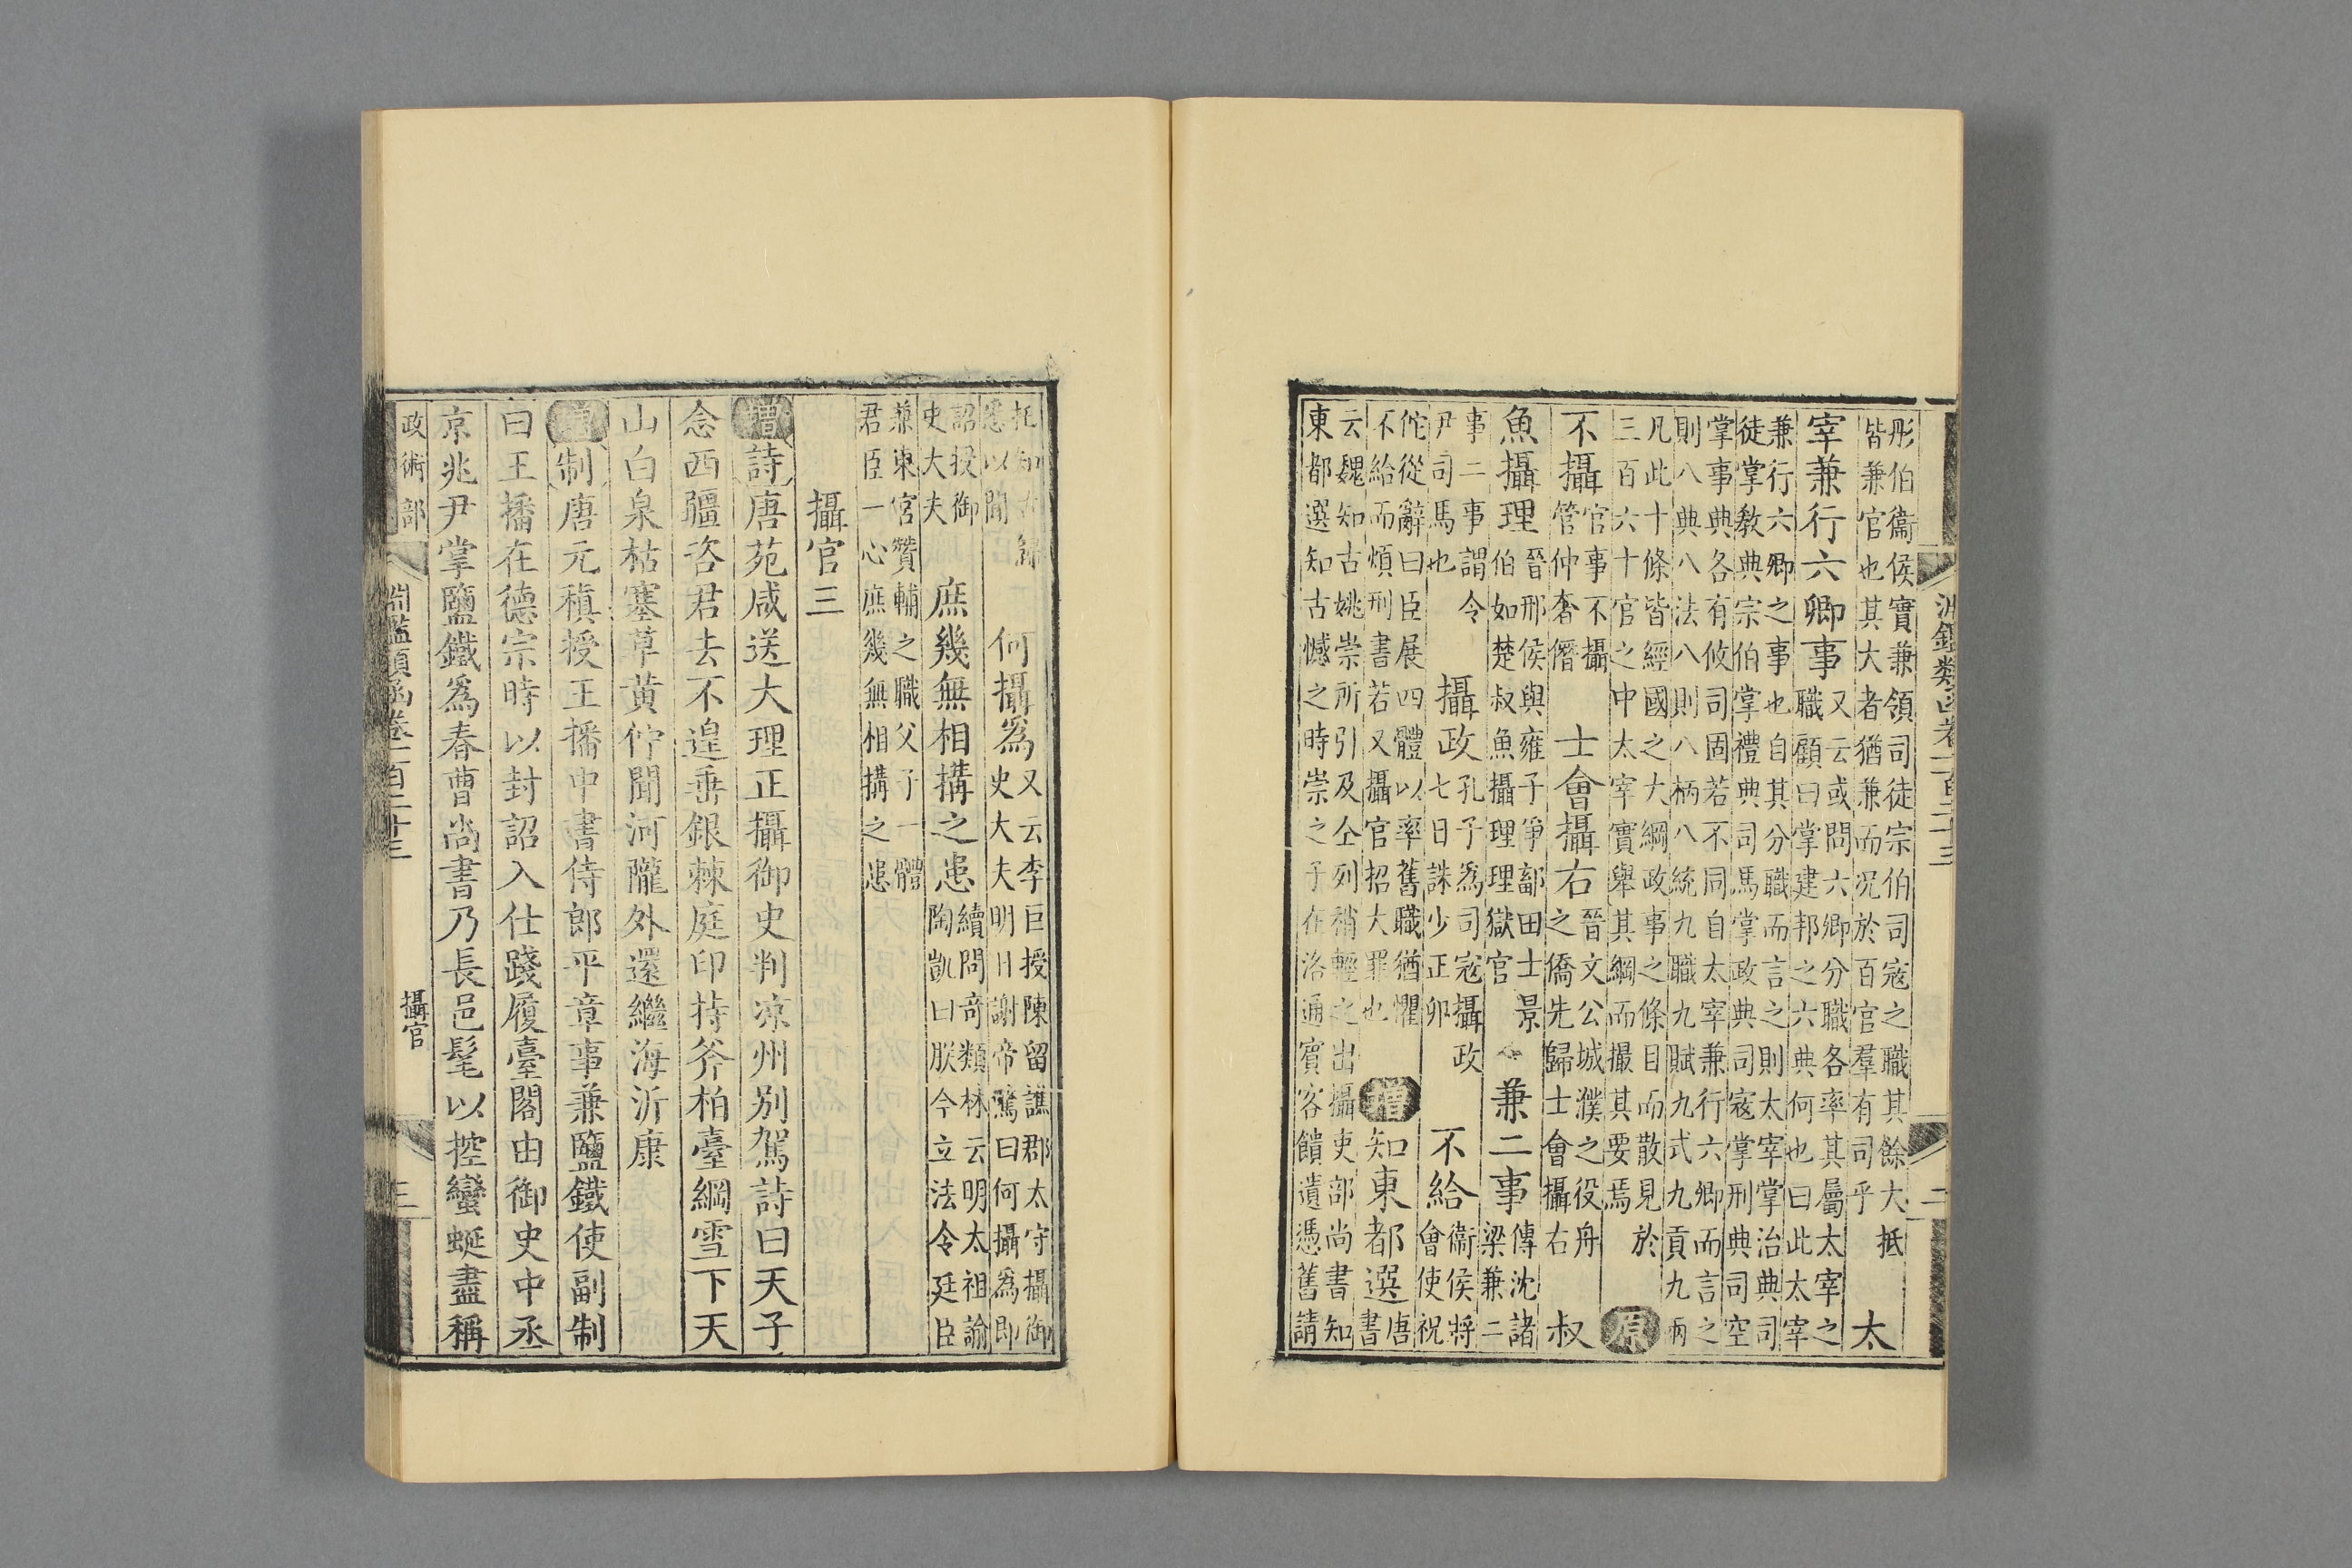 彤伯衞侯實兼領司徒宗伯司寇之職其餘大抵
皆兼官也其大者猶兼而况於百官羣有司乎
太
宰兼行六卿事
又云或問六卿分職各率其屬太宰之
職顧曰掌建邦之六典何也曰此太宰
兼行六卿之事也自其分職而言之則太宰掌治典司
徒掌教典宗伯掌禮典司馬掌政典司寇掌刑典司空
掌事典各有攸司固若不同自太宰兼行六卿而言之
則八典八法八則八柄八統九職九賦九式九貢九兩
凡此十條皆經國之大綱政事之條目而散見於
三百六十官之中太宰實舉其綱而撮其要焉
原
不攝
官事不攝
管仲奢僭
士會攝右
晉文公城濮之役舟
之僑先歸士會攝右
叔
魚攝理
晉邢侯與雍子爭鄐田士景
伯如楚叔魚攝理理獄官
兼二事
傳沈諸
梁兼二
事二事謂令
尹司馬也
攝政
孔子爲司寇攝政
七日誅少正卯
不給
衞侯將
會使祝
佗從辭曰臣展四體以率舊職猶懼
不給而煩刑書若又攝官招大罪也
增
知東都選
唐
書
云魏知古姚崇所引及仝列稍輕之出攝吏部尚書知
東都選知古憾之時崇之子在洛通賓客饋遺憑舊請
淵鑑類函卷一百二十三
二
托知古歸
悉以聞
何攝爲
又云李巨授陳留譙郡太守攝御
史大夫明日謝帝驚曰何攝爲即
詔授御
史大夫
庶幾無相搆之患
續問奇類林云明太祖諭
陶凱曰朕今立法令廷臣
兼東宮贊輔之職父子一體
君臣一心庶幾無相搆之患
攝官三
增詩唐苑咸送大理正攝御史判凉州别駕詩曰天子
念西疆咨君去不遑垂銀棘庭印持斧柏臺綱雪下天
山白泉枯塞草黄佇聞河隴外還繼海沂康
增制唐元稹授王播中書侍郎平章事兼鹽鐵使副制
曰王播在德宗時以封詔入仕踐履臺閣由御史中丞
京兆尹掌鹽鐵爲春曹尚書乃長邑髦以控蠻蜒盡稱
政術部
淵鑑類函卷一百二十三
攝官
三